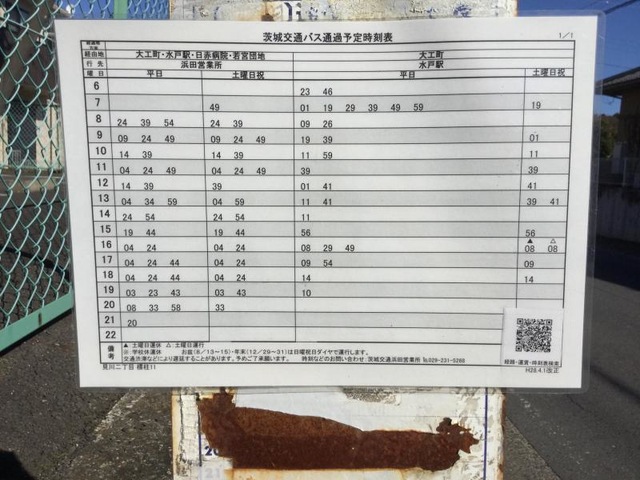 茨城交通バス通過予定時刻表 1/1
経由地 大工町・水戸駅・日赤病院・若宮団地 大工町
行先 浜田営業所 水戸駅
曜日 平日 土曜日祝 平日 土曜日祝
6 23 46
7 49 01 19 29 39 49 59 19
8 24 39 54 24 39 09 26
9 09 24 49 09 24 49 19 39 01
10 14 39 14 39 11 59 11
11 04 24 49 04 24 49 39 39
12 14 39 39 01 41 41
13 04 34 59 04 59 11 41 39 41
14 24 54 24 54 11
15 19 44 19 44 56 56
▲ △
16 04 24 04 24 08 29 49 08 08
17 04 24 44 04 24 09 54 09
18 04 24 44 04 24 14 14
19 03 23 43 03 43 10
20 08 33 58 33
21 20
22
備考 ▲:土曜日運休 △:土曜日運行
※:学校休運休 お盆(8/13~15)・年末(12/29~31)は日曜祝日ダイヤで運行します。
交通渋滞などにより遅延することがあります。予めご了承願います。 時刻などのお問い合わせ:茨城交通浜田営業所 ℡029-231-5268
経路・運賃・時刻表検索
見川二丁目 標柱11 H28.4.1改正